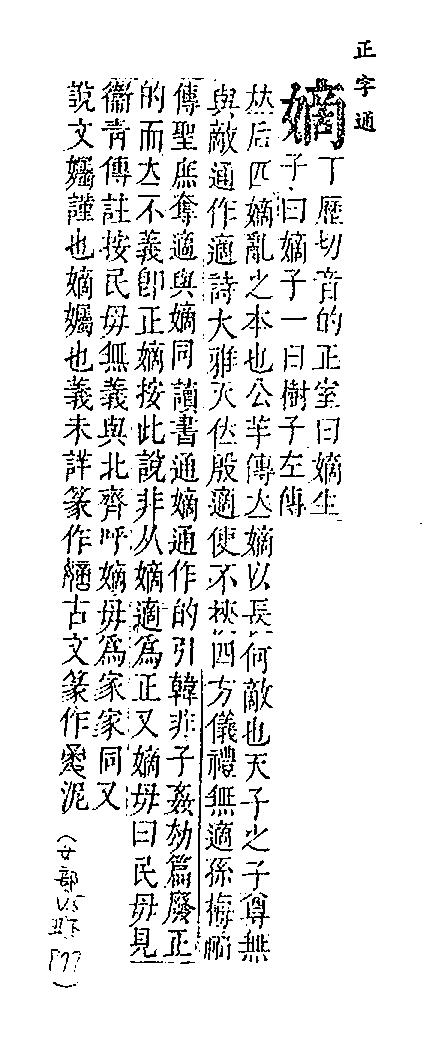 正字通
嫡
丁歷切音的正室曰嫡生
子曰嫡子一曰樹子左傳
竝后匹嫡亂之本也公羊傳立嫡以長何敵也天子之子尊無
與敵通作適詩大雅天位殷適使不挾四方儀禮無適孫梅
傳聖庶奪適與嫡同讀書通嫡通作的引韓非子姦劫篇廢正
的而立不義卽正嫡按此說非从嫡適爲正又嫡毋曰民毋見
衞青傳註按民毋無義與北齊呼嫡毋爲家家同又
說文孎謹也嫡孎也義未詳篆作 古文篆作 泥
(女部